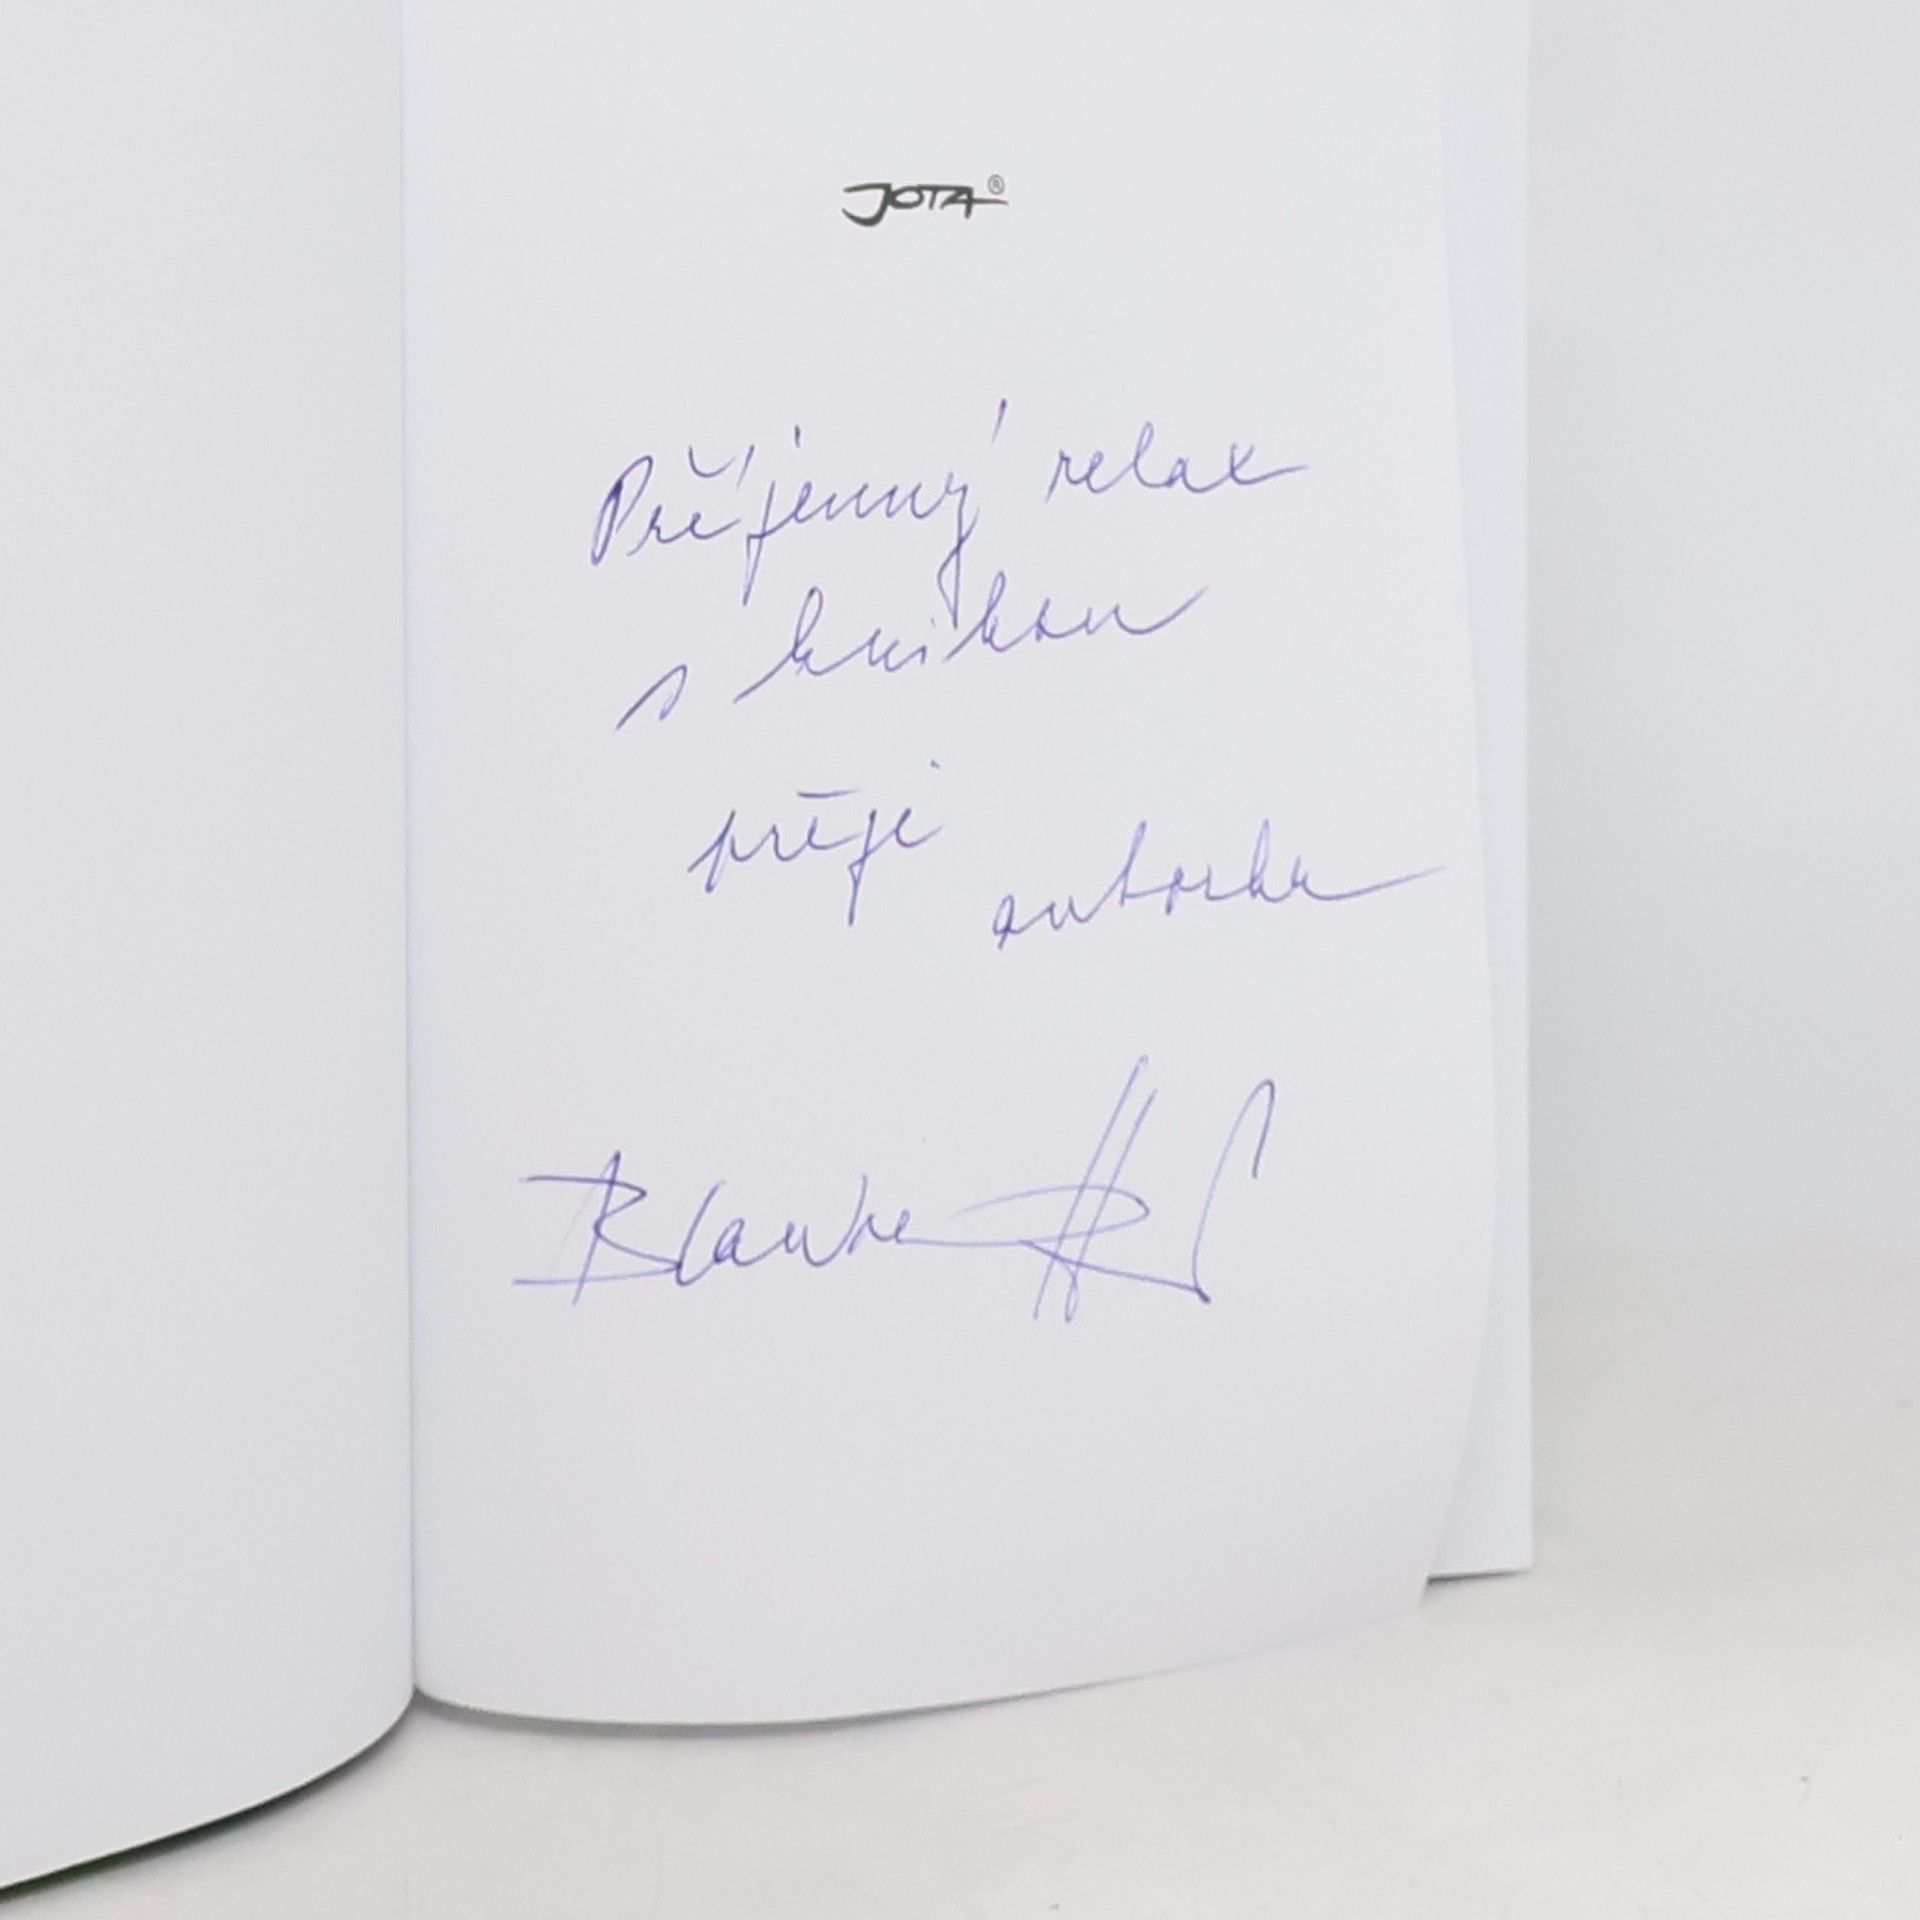 JOTA®
Příjemný relax
s knihou
přeje
autorka
Blanka